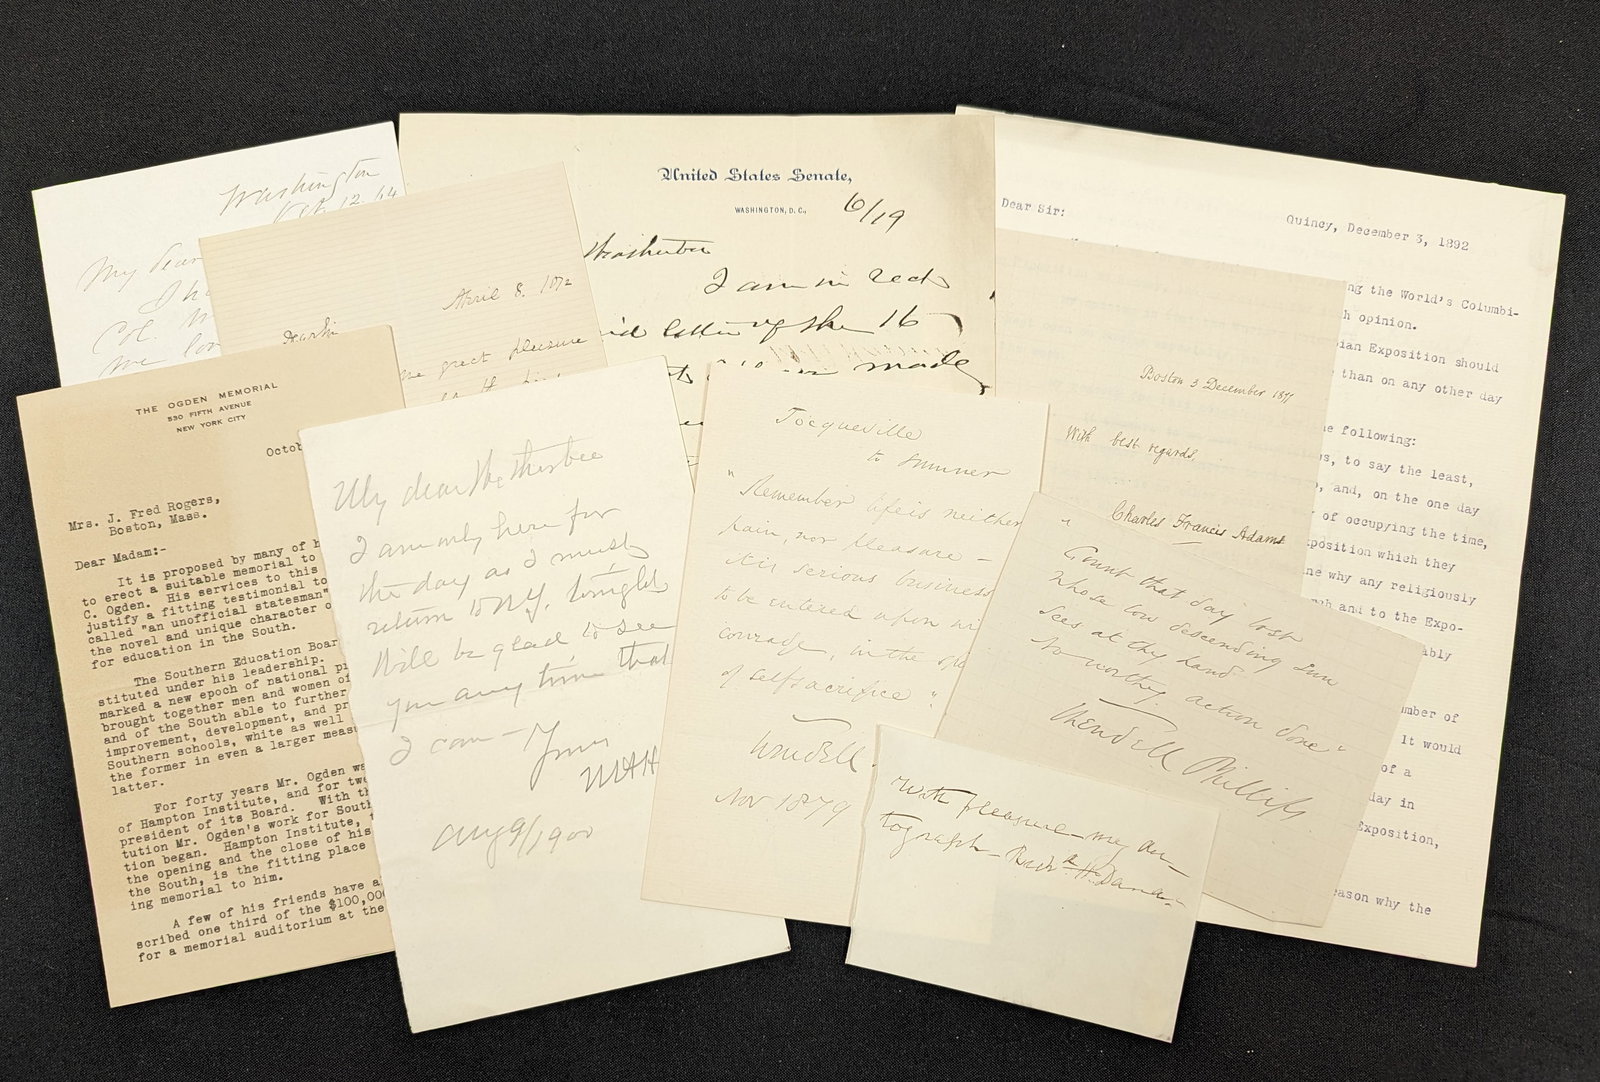 Washington
12. 64
My dear
Col.
me
April 8. 1872
Dear Sir
great pleasure
United States Senate,
WASHINGTON, D. C.,
6/19
I am in rec't
letter of the 16
made
Dear Sir:
Quincy, December 3, 1892
ng the World's Columbi-
h opinion.
ian Exposition should
than on any other day
e following:
s, to say the least,
, and, on the one day
of occupying the time,
position which they
ne why any religiously
and to the Expo-
ably
mber of
It would
of a
day in
Exposition,
eason why the
THE OGDEN MEMORIAL
530 FIFTH AVENUE
NEW YORK CITY
Octob
Mrs. J. Fred Rogers,
Boston, Mass.
Dear Madam:-
It is proposed by many of h
to erect a suitable memorial to
C. Ogden. His services to this
justify a fitting testimonial to
called "an unofficial statesman"
the novel and unique character o
for education in the South.
The Southern Education Boar
stituted under his leadership.
marked a new epoch of national pr
brought together men and women of
and of the South able to further
improvement, development, and pr
Southern schools, white as well
the former in even a larger measu
latter.
For forty years Mr. Ogden wa
of Hampton Institute, and for twe
president of its Board. With th
tution Mr. Ogden's work for South
tion began. Hampton Institute, t
the opening and the close of his
the South, is the fitting place
ing memorial to him.
A few of his friends have a
scribed one third of the $100,000
for a memorial auditorium at the
My dear Wetherbee
I am only here for
the day as I must
return to N.Y. tonight
Will be glad to see
you any time that
I can - Yours
MAH
Aug 9/1900
Tocqueville
to Sumner
"Remember life is neither
pain, nor pleasure -
it is serious business
to be entered upon w
courage, in the sp
of self sacrifice"
Wendell
Nov 1879
Boston 3 December 1877
With best regards,
Charles Francis Adams
"Count that day lost
Whose low descending sun
Sees at thy hand
No worthy action done"
Wendell Phillips
With pleasure - my au-
tograph - Richd H. Dana.